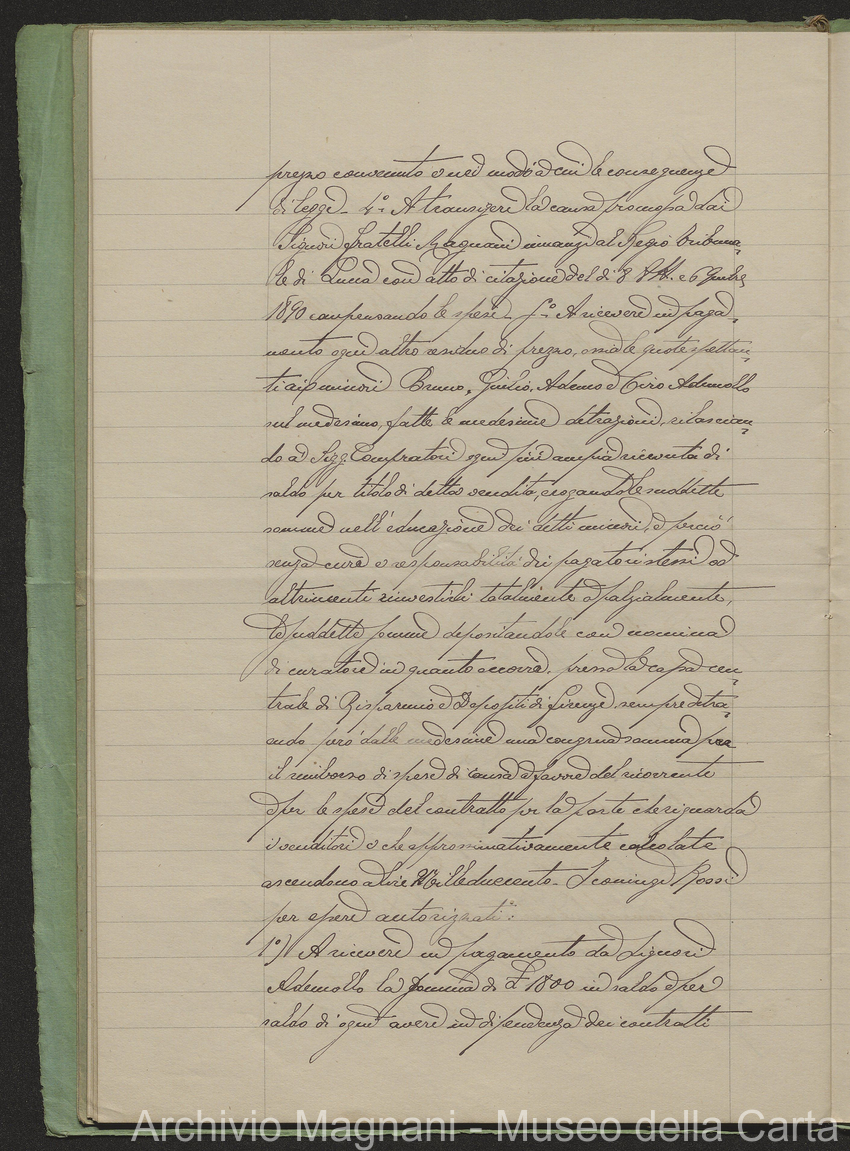 prezzo convenuto e nei modi a cui le conseguenze
di legge. 4º A transigere la causa promossa dai
Signori fratelli Magnani innanzi al Regio Tribuna=
le di Lucca con atto di citazione del dì 8 e 6
1890 compensando le spese. 5º A ricevere in paga=
mento ogni altro residuo di prezzo, ossia le quote spettan=
ti ai minori Bruno, Giulio, Ademo e Ciro Ademollo
sul medesimo, fatte le medesime detrazioni, rilascian=
do ai Sigg. Compratori ogni più ampia ricevuta di
saldo per titolo di detta vendita, erogando le suddette
somme nell'educazione dei detti minori, e perciò
senza cura o responsabilità dei pagatori stessi od
altrimenti rinvestirli totalmente o parzialmente,
le suddette somme depositandole con nomina
di curatore in quanto occorra, presso la cassa cen=
trale di Risparmio e Depositi di Firenze, sempre detra=
endo però dalle medesime una congrua somma per
il rimborso di spese di causa a favore del ricorrente
e per le spese del contratto per la parte che riguarda
i venditori e che approssimativamente calcolate
ascendono a lire Milleduecento. I coniugi Rossi
per essere autorizzati:
1º) A ricevere in pagamento da Signori
Ademollo la somma di £ 1800 in saldo e per
saldo di ogni avere in dipendenza dei contratti
Archivio Magnani - Museo della Carta